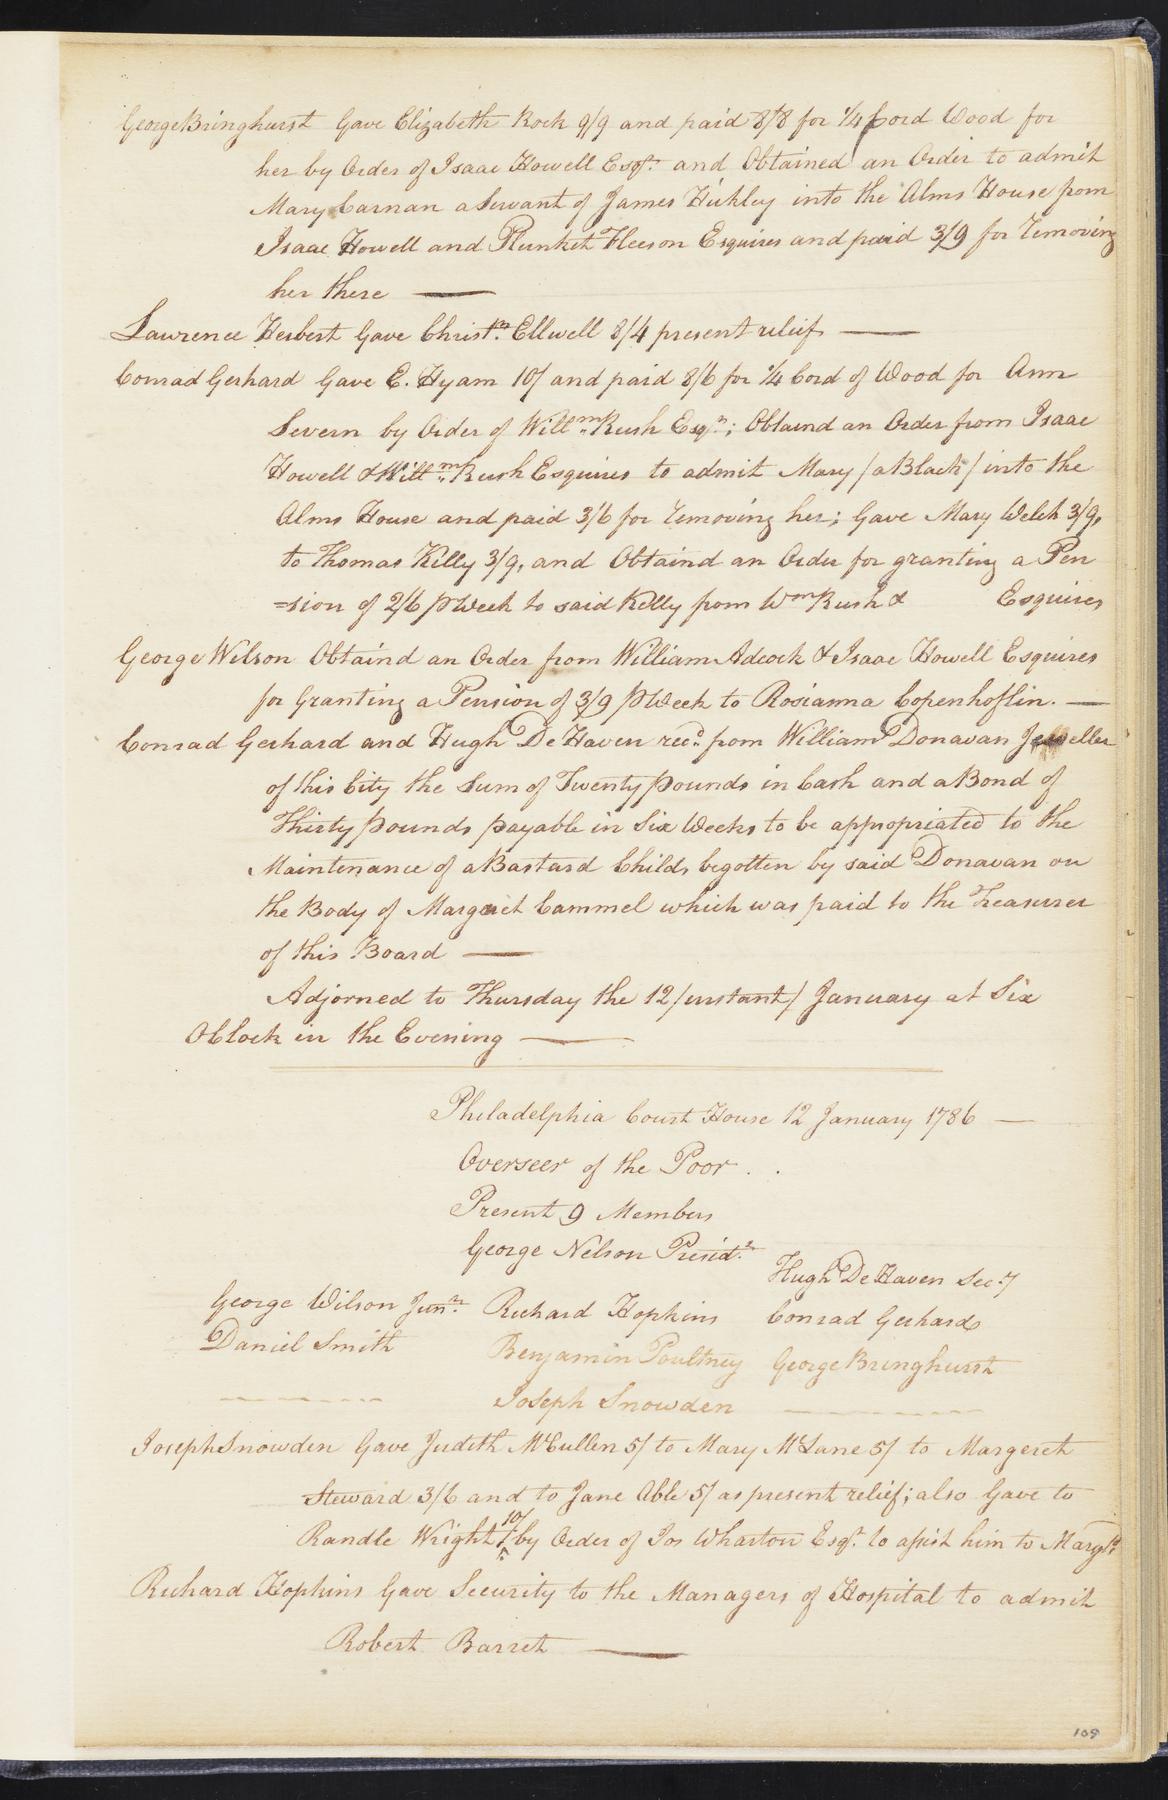 George Bringhurst Gave Elizabeth Rock 9/9 and paid 8/8 for 1/4 Cord Wood for
her by Order of Isaac Howell Esqr. and Obtained an Order to admit
Mary Carnan a Servant of James Hickley into the Alms House from
Isaac Howell and Plunket Fleeson Esquires and paid 3/9 for removing
her there —
Lawrence Herbert Gave Christn. Ellwell 8/4 present relief —
Conrad Gerhard Gave E. Hyam 10/ and paid 8/6 for 1/4 Cord of Wood for Ann
Severn by Order of Willm. Rush Esqr.; Obtaind an Order from Isaac
Howell & Willm. Rush Esquires to admit Mary /a Black/ into the
Alms House and paid 3/6 for removing her; Gave Mary Welch 3/9,
to Thomas Killy 3/9, and Obtaind an Order for granting a Pen
=sion of 2/6 p Week to said Kelly from Wm Rush & Esquires
George Wilson Obtaind an Order from William Adcock & Isaac Howell Esquires
for Granting a Pension of 3/9 p Week to Rosianna Copenhoflin. —
Conrad Gerhard and Hugh De Haven recd. from William Donavan Jeweller
of this City the Sum of Twenty pounds in Cash and a Bond of
Thirty pounds payable in Six Weeks to be appropriated to the
Maintenance of a Bastard Child, begotten by said Donavan on
the Body of Margaret Cammel which was paid to the Treasurer
of this Board —
Adjorned to Thursday the 12 /instant/ January at Six
OClock in the Evening —
Philadelphia Court House 12 January 1786 —
Overseer of the Poor . .
Present 9 Members
George Nelson Presidt.
Hugh De Haven Secy
George Wilson Junr. Richard Hopkins Conrad Gerhard
Daniel Smith Benjamin Poultney George Bringhurst
Joseph Snowden
Joseph Snowden Gave Judith McCullen 5/ to Mary McLane 5/ to Margeret
Steward 3/6 and to Jane Able 5/ as present relief; also Gave to
Randle Wright 10/ by Order of Jos Wharton Esqr. to assist him to Maryld.
Richard Hopkins Gave Security to the Managers of Hospital to admit
Robert Barret —
109